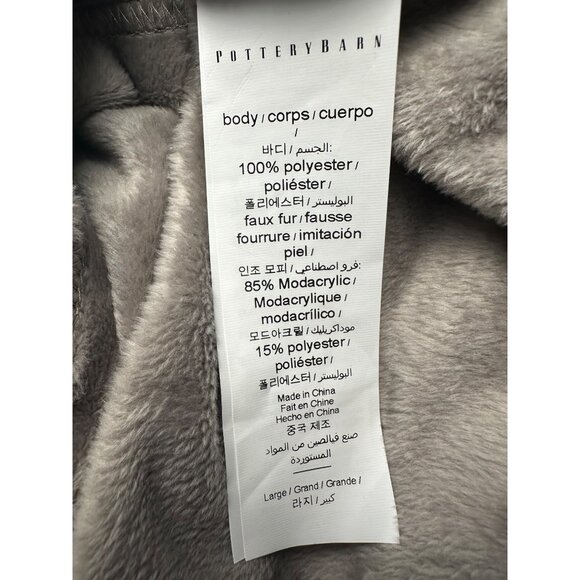 POTTERYBARN
body / corps / cuerpo
/
바디 / الجسم:
100% polyester /
poliéster /
폴리에스터 / البوليستر
faux fur / fausse
fourrure / imitación
piel /
인조 모피 / فرو اصطناعي:
85% Modacrylic /
Modacrylique /
modacrílico /
모드아크릴 / موداكريليك
15% polyester /
poliéster /
폴리에스터 / البوليستر
Made in China
Fait en Chine
Hecho en China
중국 제조
صنع فيالصين من المواد
المستوردة
Large / Grand / Grande /
라지 / كبير